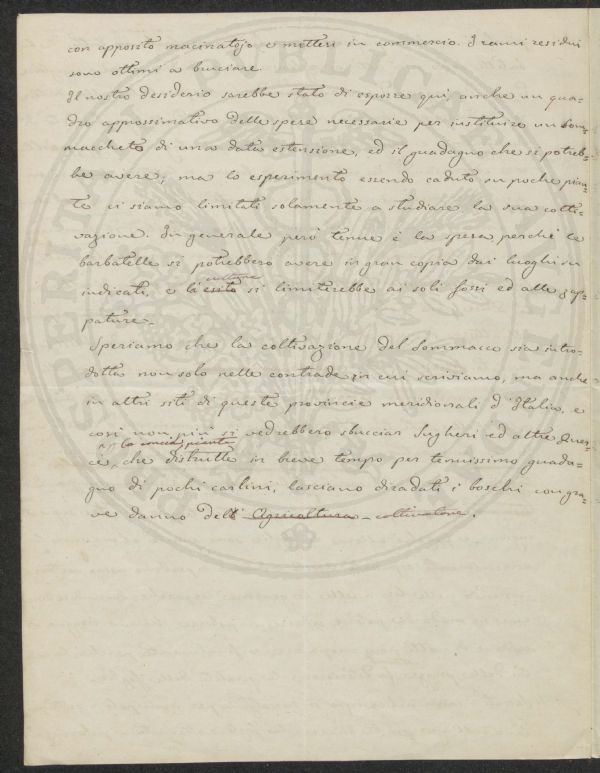 con apposito macinatojo e mettersi in commercio. I rami residui
sono ottimi a bruciare.
Il nostro desiderio sarebbe stato di esporre qui, anche un qua=
dro approssimativo delle spese necessarie per instituire un Som=
maccheto di una data estensione, ed il guadagno che si potreb=
be avere; ma lo esperimento essendo caduto su poche pian=
te ci siamo limitati solamente a studiare la sua colti=
vazione. In generale però tenue è la spesa perchè le
barbatelle si potrebbero avere in gran copia dai luoghi su
culture
indicati, e li esito si limiterebbe ai soli fossi ed alle zap=
pature.
Speriamo che la coltivazione del Sommacco sia intro=
dotta non solo nelle contrade in cui scriviamo, ma anche
in altri siti di queste provincie meridionali d'Italia, e
così non più si vedrebbero sbucciar Sugheri ed altre Quer=
per la concia piante
ce, che distrutte in breve tempo per tenuissimo guada=
gno di pochi carlini, lasciano diradati i boschi con gra=
ve danno dell' Agricoltura coltivatore.
SPERIT
PUBLIC